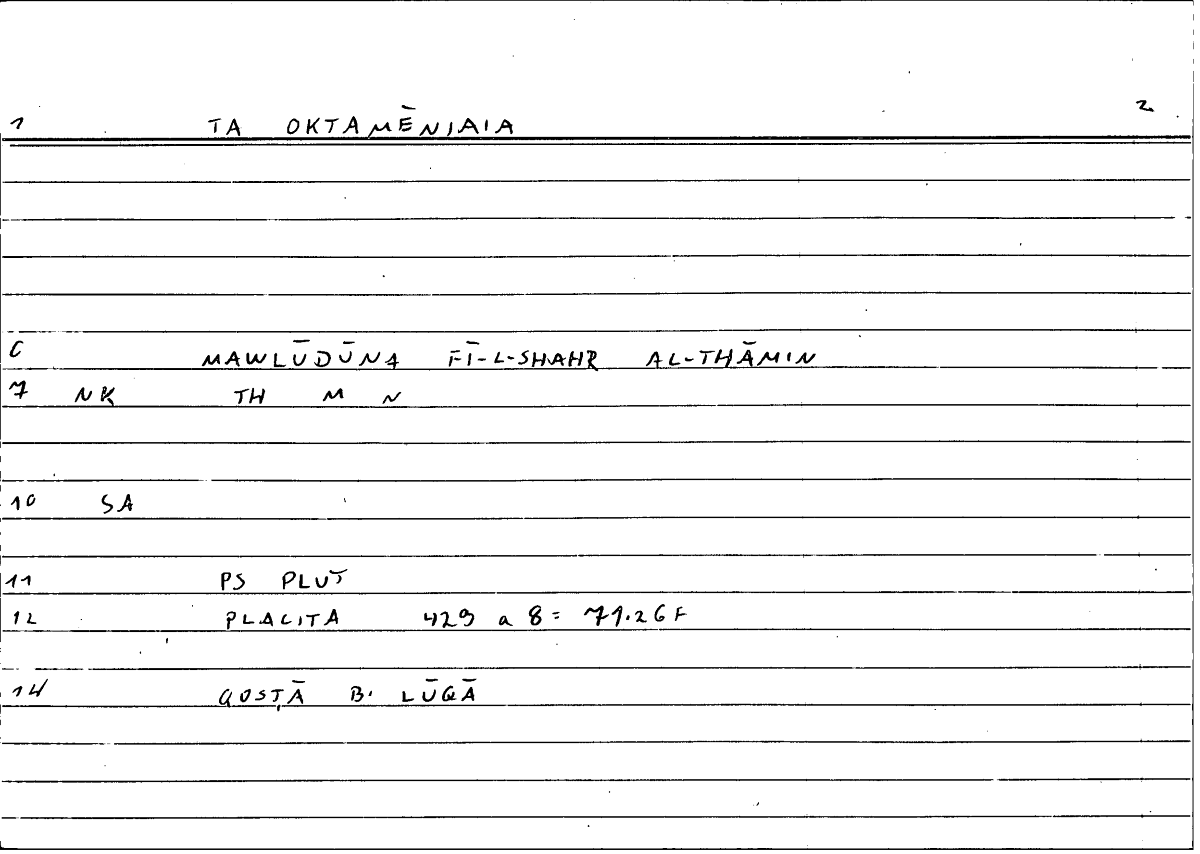 1 TA OKTAMĒNIAIA 2
6 MAWLŪDŪNA FĪ-L-SHAHR AL-THĀMIN
7 NK TH M N
10 SA
11 PS PLUT
12 PLACITA 429 a 8 = 71.26F
14 QOSṬĀ B. LŪQĀ